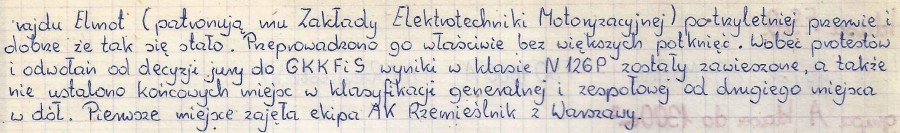 rajdu Elmot (patronują mu Zakłady Elektrotechniki Motoryzacyjnej) po trzyletniej przerwie i
dobrze że tak się stało. Przeprowadzono go właściwie bez większych potknięć. Wobec protestów
i odwołań od decyzji jury do GKKFiS wyniki w klasie N 126P zostały zawieszone, a także
nie ustalono końcowych miejsc w klasyfikacji generalnej i zespołowej od drugiego miejsca
w dół. Pierwsze miejsce zajęła ekipa AK Rzemieślnik z Warszawy.